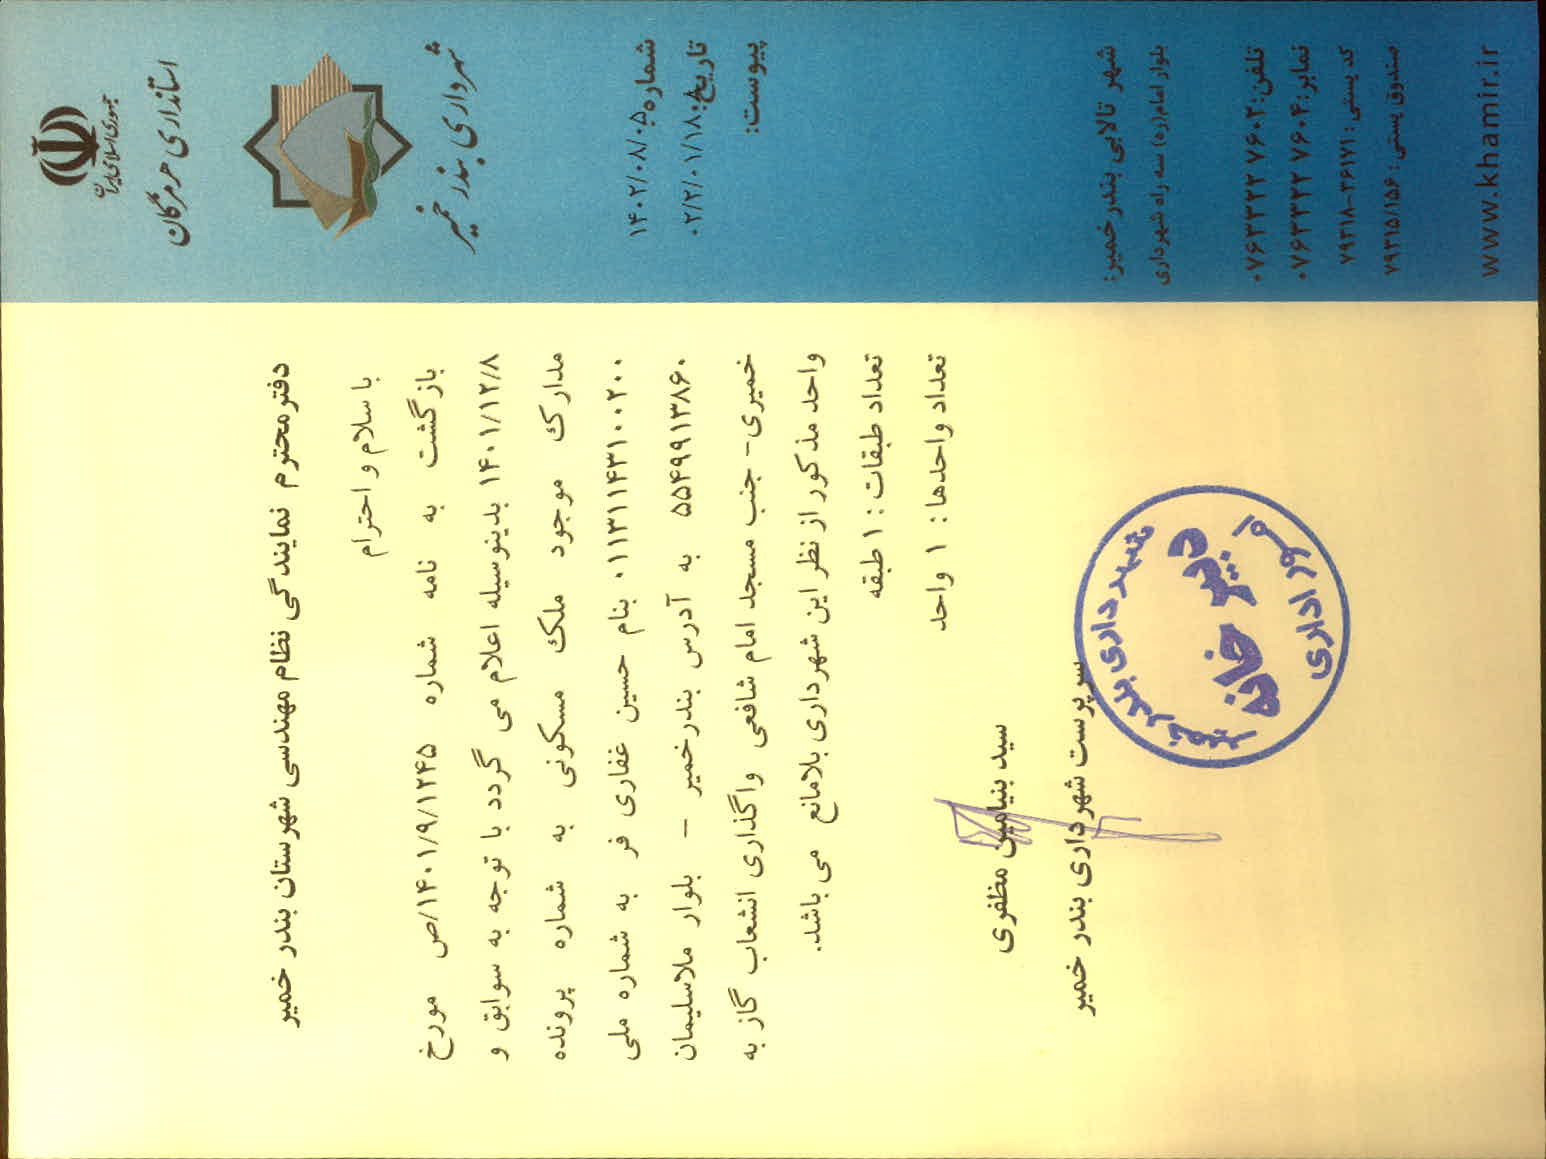 جمهوری اسلامی ایران
استانداری هرمزگان
شهرداری بندر خمیر
شماره: ۱۴۰۲/۰۸/۰۵
تاریخ: ۰۲/۲/۰۱/۱۸۰۸
پیوست:
دفتر محترم نمایندگی نظام مهندسی شهرستان بندر خمیر
با سلام و احترام
بازگشت به نامه شماره ۱۴۰۱/۹/۱۲۴۵/ص مورخ
۱۴۰۱/۱۲/۸ بدینوسیله اعلام می گردد با توجه به سوابق و
مدارک موجود ملک مسکونی به شماره پرونده
۰۱۱۳۱۱۴۳۱۰۰۲۰۰ بنام حسین غفاری فر به شماره ملی
۵۵۴۹۹۱۳۸۶۰ به آدرس بندرخمیر – بلوار ملاسلیمان
خمیری- جنب مسجد امام شافعی واگذاری انشعاب گاز به
واحد مذکور از نظر این شهرداری بلامانع می باشد.
تعداد طبقات : ۱ طبقه
تعداد واحدها : ۱ واحد
سید بنیامین مظفری
سرپرست شهرداری بندر خمیر
شهرداری بندر خمیر
دبیر خانه
امور اداری
شهر تالابی بندر خمیر:
بلوار امام(ره) سه راه شهرداری
تلفن: ۰۷۶۳۳۲۲۷۶۰۲
نمابر: ۰۷۶۳۳۲۲۷۶۰۴
کد پستی: ۷۹۳۱۸-۳۶۱۷۱
صندوق پستی: ۷۹۳۱۵/۱۵۶
www.khamir.ir